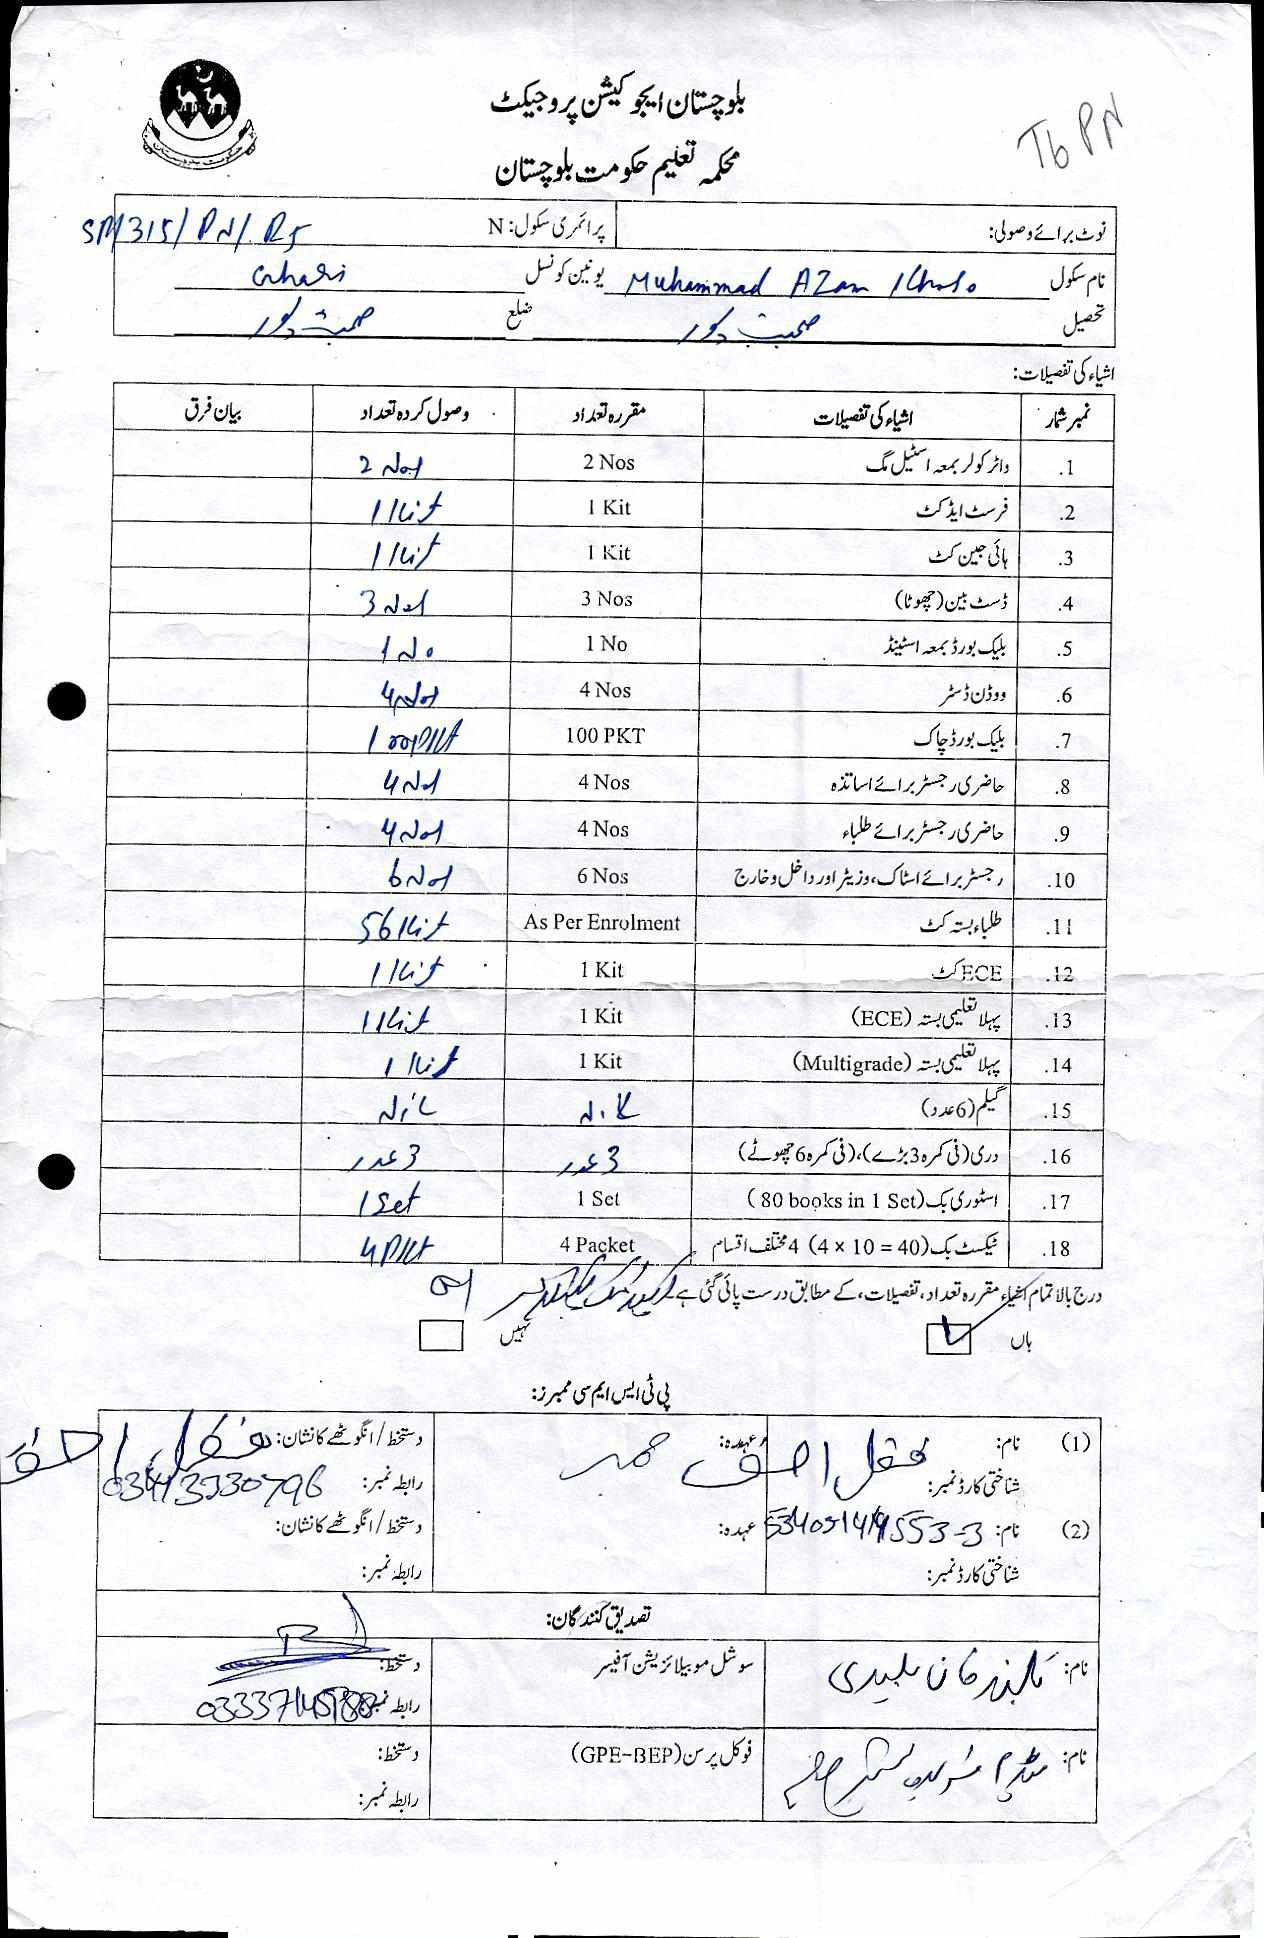 بلوچستان ایجوکیشن پروجیکٹ
T6 PN
محکمہ تعلیم حکومت بلوچستان
نوٹ برائے وصولی: پرائمری سکول: N SM315/PN/R5
نام سکول Muhammad AZam Khoso یونین کونسل
تحصیل صحبت پور ضلع صحبت پور
اشیاء کی تفصیلات:
نمبر شمار اشیاء کی تفصیلات مقررہ تعداد وصول کردہ تعداد بیان فرق
1. واٹر کولر بمعہ اسٹیل مگ 2 Nos 2 Nos
2. فرسٹ ایڈ کٹ 1 Kit 1 Kit
3. ہائی جین کٹ 1 Kit 1 Kit
4. ڈسٹ بین (چھوٹا) 3 Nos 3 Nos
5. بلیک بورڈ بمعہ اسٹینڈ 1 No 1 No
6. ووڈن ڈسٹر 4 Nos 4 Nos
7. بلیک بورڈ چاک 100 PKT 100 PKT
8. حاضری رجسٹر برائے اساتذہ 4 Nos 4 Nos
9. حاضری رجسٹر برائے طلباء 4 Nos 4 Nos
10. رجسٹر برائے اسٹاک، وزیٹر اور داخل و خارج 6 Nos 6 Nos
11. طلباء بستہ کٹ As Per Enrolment 56 Kit
12. ECE کٹ 1 Kit 1 Kit
13. پہلا تعلیمی بستہ (ECE) 1 Kit 1 Kit
14. پہلا تعلیمی بستہ (Multigrade) 1 Kit 1 Kit
15. گیلم (6 عدد) Nil
16. دری (فی کمرہ 3 بڑے)، (فی کمرہ 6 چھوٹے) 3 عدد 3 عدد
17. اسٹوری بک (80 books in 1 Set) 1 Set 1 Set
18. ٹیکسٹ بک (4 x 10 = 40) 4 مختلف اقسام 4 Packet 4 PKt
درج بالا تمام اشیاء مقررہ تعداد، تفصیلات، کے مطابق درست پائی گئی ہے۔
ہاں نہیں
پی ٹی ایس ایم سی ممبرز:
(1) نام: عہدہ: دستخط/انگوٹھے کا نشان:
شناختی کارڈ نمبر: رابطہ نمبر:
(2) نام: عہدہ: دستخط/انگوٹھے کا نشان:
شناختی کارڈ نمبر: رابطہ نمبر:
تصدیق کنندگان:
نام: سوشل موبیلائزیشن آفیسر دستخط:
رابطہ نمبر:
نام: فوکل پرسن (GPE-BEP) دستخط:
رابطہ نمبر: